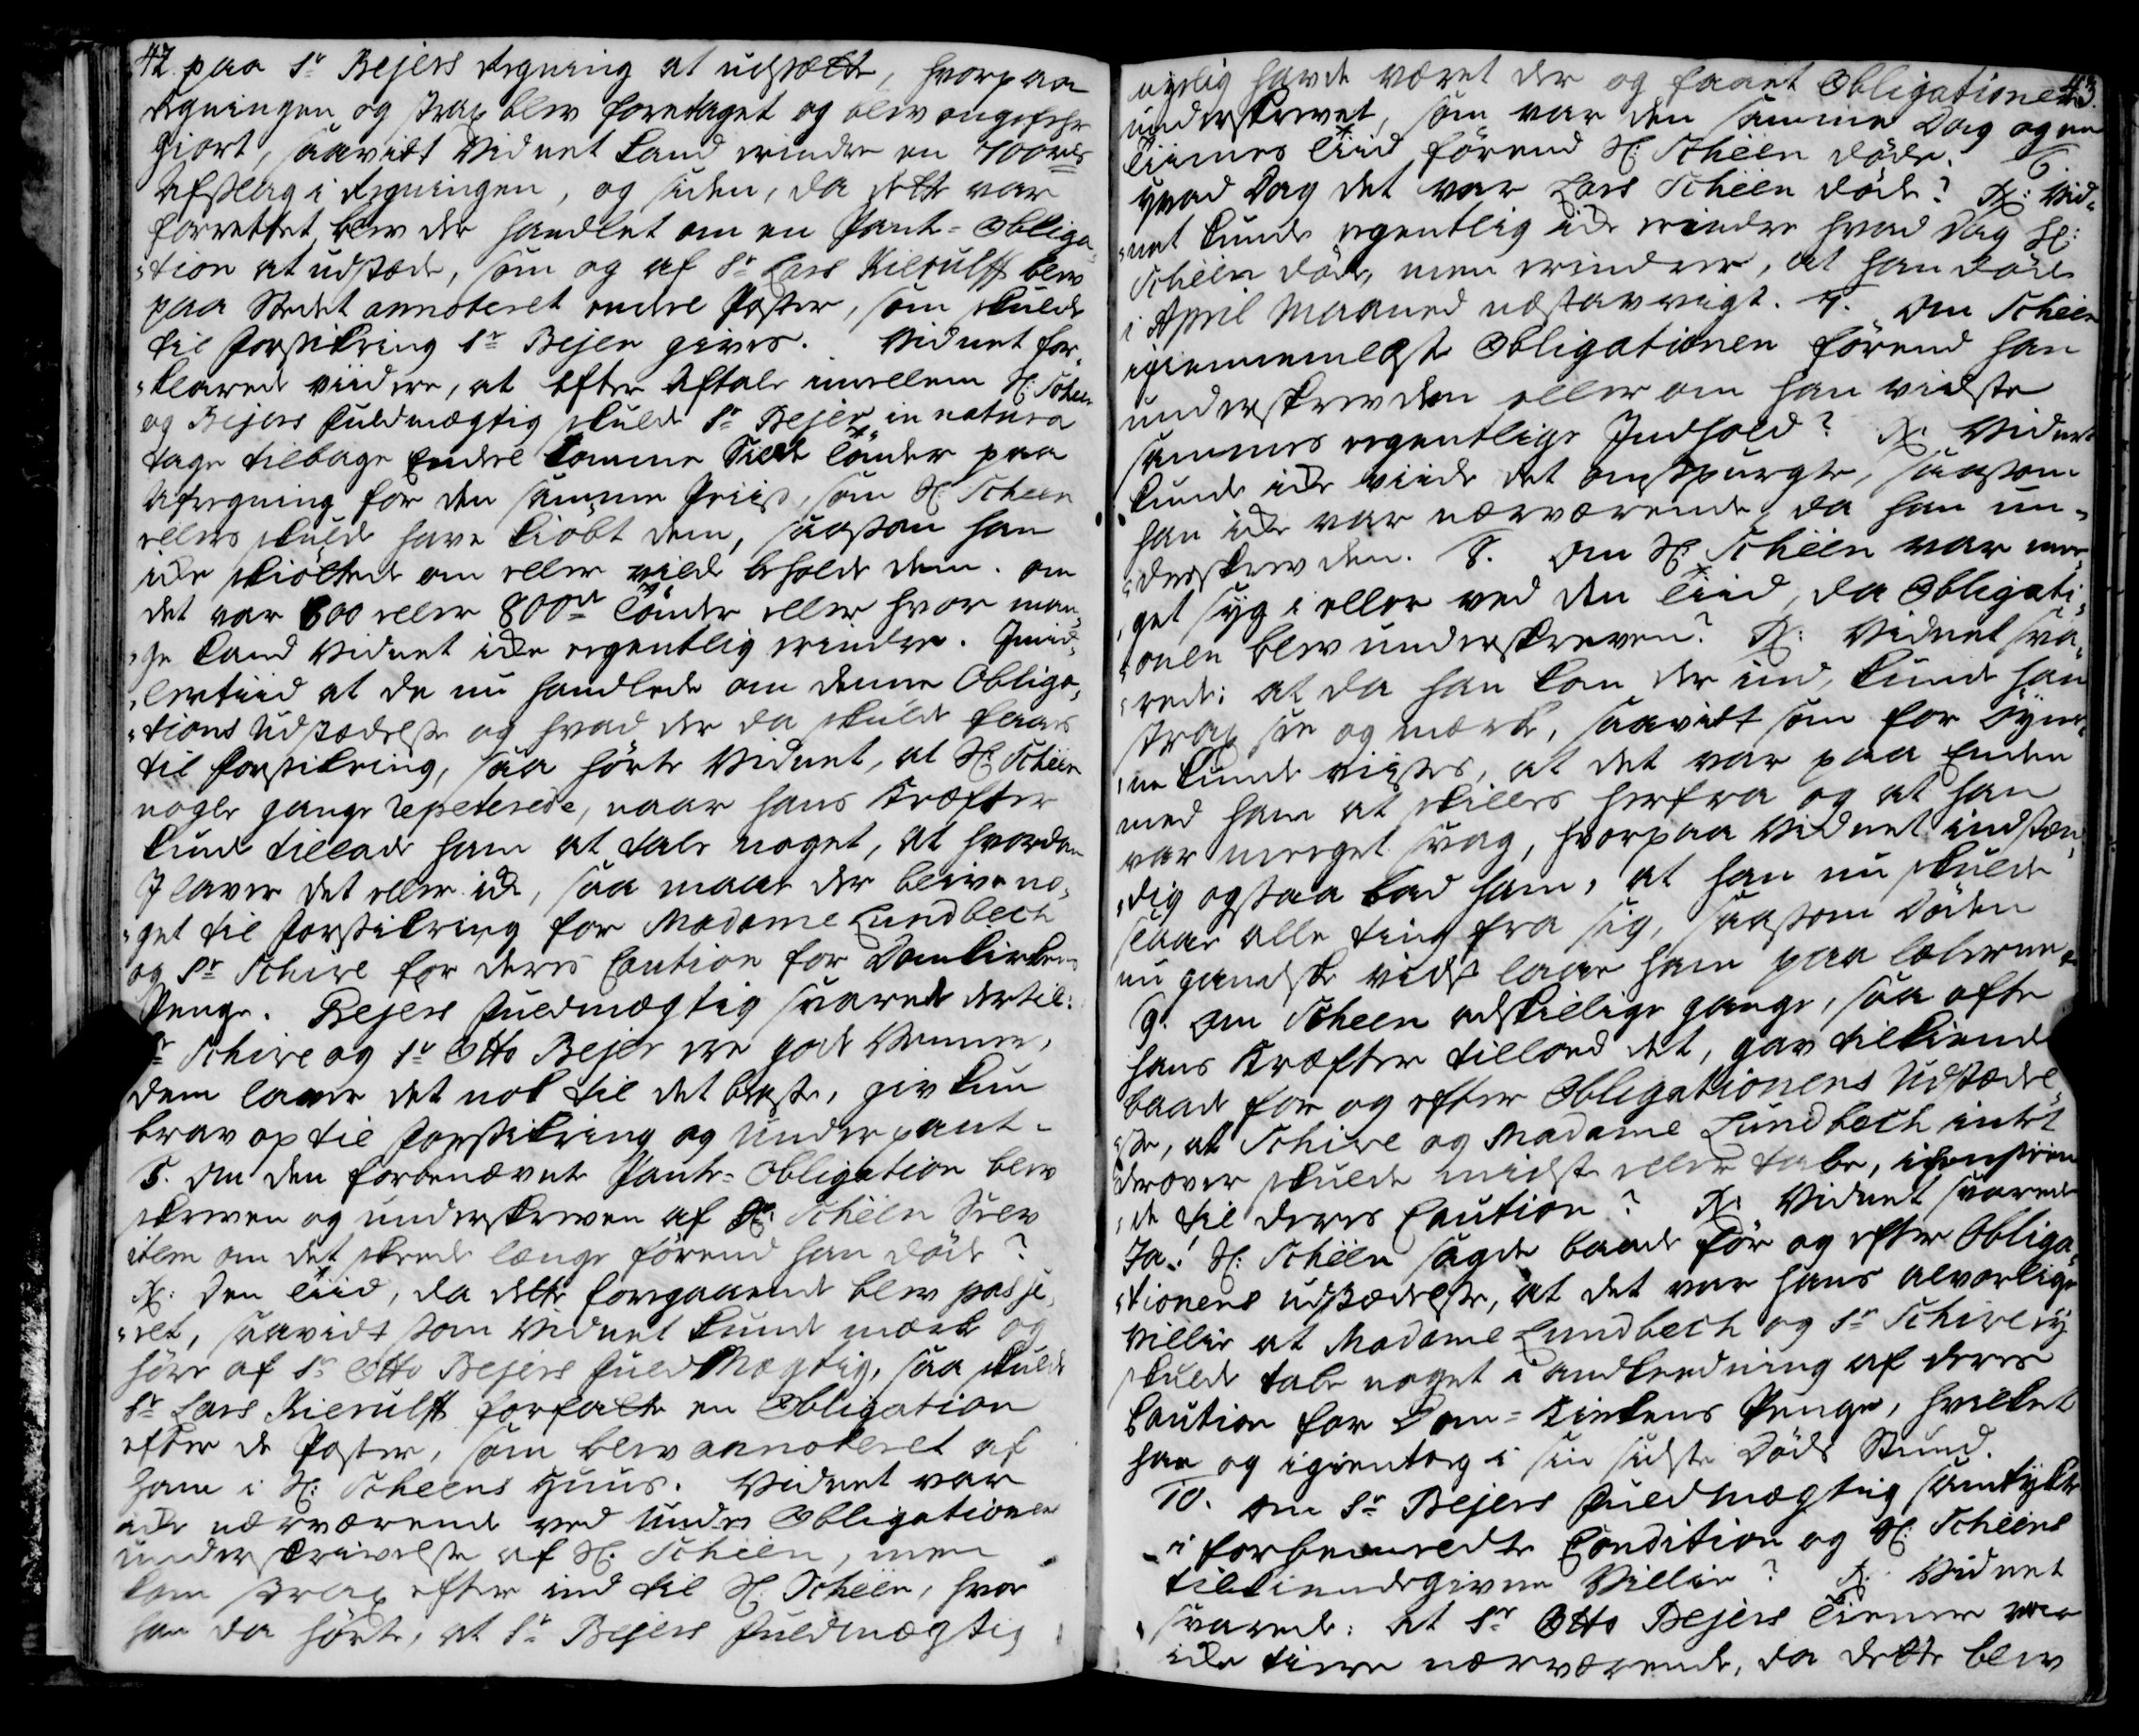 42. paa Sr Bejers Regning at udsætte, hvorpaa
Regningen og strax blev foretaget og blev ongefehr
giort, saavitt Vidnet kand erindre en 700 rdr
Afslag i Regningen, og siden, da dette var
forrettet blev der handlet om en Pant-Obliga-
-tion at udstæde, som og af Sr Lars Kierulff blev
paa Stedet annoteret endeel Poster, som skulde
til Forsikring Sr Bejer gives. Vidnet for-
-klarede viidere, at efter Aftale imellem H: Scheen
og Bejers Fuldmægtig skulde Sr Bejer in natura
tage tilbage Endeel tomme Silde Tönder paa
Afregning for den samme Priis, som H: Scheen
ellers skulde have kiøbt dem, saasom han
icke skiöttede om eller vilde beholde dem. om
det var 600 eller 800de Tönder eller hvor man-
-ge kand Vidnet icke egentlig erindre. Imid-
-lertiid at de nu handlede om denne Obliga-
-tions Udstædelse og hvad der da skulde faaes
til Forsikring, saa hörte Vidnet, at H: Scheen
nogle gange repeterede, naar hans Kræfter
kunde tillade ham at tale noget, at hvordan
I laver det eller ick, saa maae der blive no-
-get til Forsikring for Madame Lundbech
og Sr Schive for deres Caution for Domkirkens
Penge. Bejers Fuldmægtig svarede dertil:
Sr Schive og Sr Otto Bejer ere gode Venner,
dem laver det nok til det beste, giv kun
brav op til Forsikring og Underpant.
5. Om den forbenævnte Pante-Obligation blev
skreven og underskreven af H: Scheen Selv
item om det skede længe förend han döde?
R: Den Tiid, da dette forgaaende blev passe-
-ret, saavidt som Vidnet kunde mærke og
höre af Sr Otto Bejers Fuldmægtig, saa skulde
Sr Lars Kierulff forfatte en Obligation
efter de Poster, som blev annoteret af
ham i H: Scheens Huus. Vidnet var
icke nærværende ved Obligationens
underskrivelse af H: Scheen, men
kom strax efter ind til H: Scheen, hvor
han da hörte, at Sr Bejers Fuldmægtig
43.
nyelig havde været der og faaet Obligationen
underskrevet, som var den samme Dag og en
Tiimes Tiid förend H: Scheen döde. 6
Hvad Dag det var Lars Scheen döde? R: Vid-
-net kunde egentlig icke erindre hvad Dag H:
Scheen döde, men erindrer, at han döde
i April Maaned næstavvigt. 7. Om Scheen
igiennemlæste Obligationen förend han
underskrev den eller om han vidste
sammes egentlige Indhold? R: Vidnet
kunde icke viide det omspurgte, saasom
han icke var nærværende, da han un-
-derskrev den. 8. Om H: Scheen var me-
-get syg i eller ved den Tiid, da Obligati-
-onen blev underskreven? R: Vidnet sva-
-rede: at da han kom der ind, kunde han
strax see og mærke, saavitt som for Öyne-
-ne kunde viises, at det var paa Enden
med ham at skilles herfra og at han
var meeget svag, hvorpaa Vidnet indstæn-
-dig ogsaa bad ham, at han nu skulde
slaae alle ting fra sig, saasom Döden
nu gandske vidst laae ham paa læberne.
9. Om Scheen adskillige gange, saa ofte
hans Kræfter tillod det, gav tilkiende
baade for og efter Obligationens Udstædel-
-se, at Schive og Madame Lundbech intet
derover skulde midste eller tabe,
til deres Caution? R: Vidnet svarede
Ja! H: Scheen sagde baade för og efter Obliga-
-tionens udstædelse, at det var hans alvorlige
Villie at Madame Lundbech og Sr Schive ey
skulde tabe noget i anledning af deres
Caution for Dom-Kirkens Penge, hvilket
han og igientog i sin sidste Döds Stund.
10. Om Sr Bejers Fuldmægtig samtykte
i forbemeldte Condition og H: Scheens
tilkiendegivne Villie? R: Vidnet
svarede: at Sr Otto Bejers Tiener var
icke tiere nærværende, da dette blev